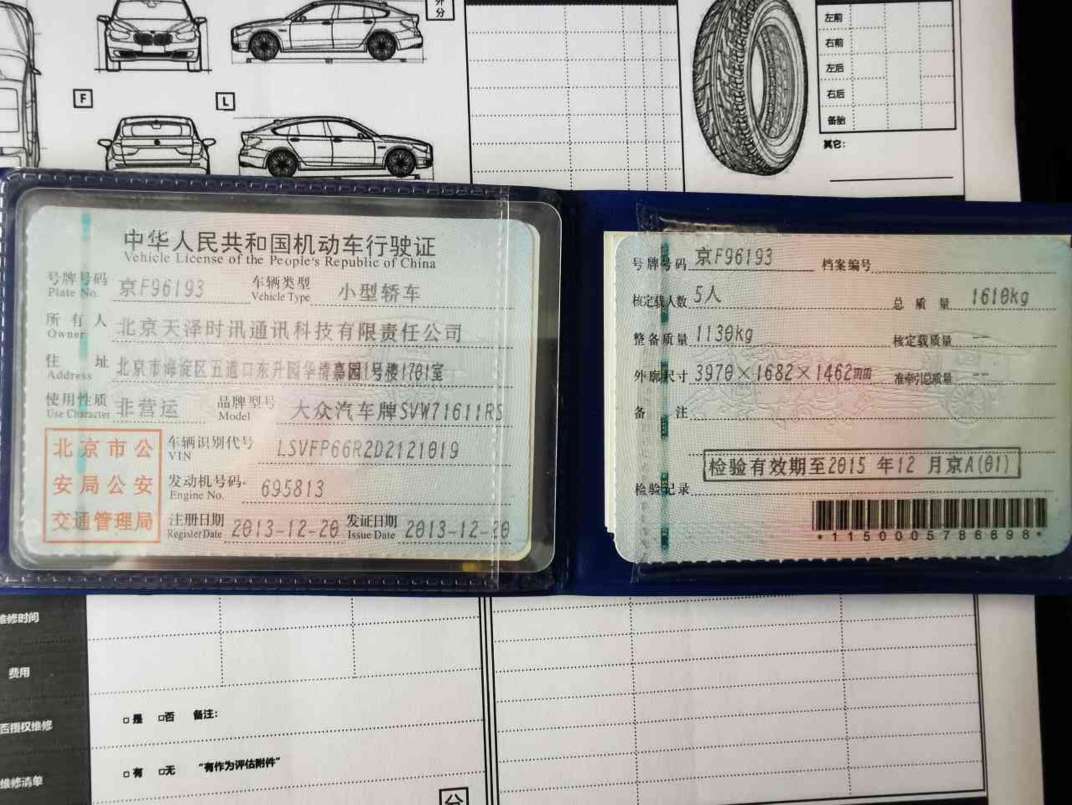 外
分
F
L
左前
右前
左后
右后
备胎
其它：
中华人民共和国机动车行驶证
Vehicle License of the People's Republic of China
号牌号码 京F96193 车辆类型 小型轿车
Plate No. Vehicle Type
所有人 北京天泽时讯通讯科技有限责任公司
Owner
住址 北京市海淀区五道口东升园华清嘉园1号楼1701室
Address
使用性质 非营运 品牌型号 大众汽车牌SVW71611RS
Use Character Model
北京市公
安局公安
交通管理局
车辆识别代号 LSVFP66R2D2121019
VIN
发动机号码 695813
Engine No.
注册日期 2013-12-20 发证日期 2013-12-20
Register Date Issue Date
号牌号码 京F96193 档案编号
核定载人数 5人 总质量 1610kg
整备质量 1130kg 核定载质量 --
外廓尺寸 3970×1682×1462mm 准牵引总质量 --
备注
检验有效期至2015 年12 月京A(01)
检验记录
*1150005786898*
维修时间
费用
否授权维修
□是 □否 备注：
维修清单
□有 □无 "有作为评估附件"